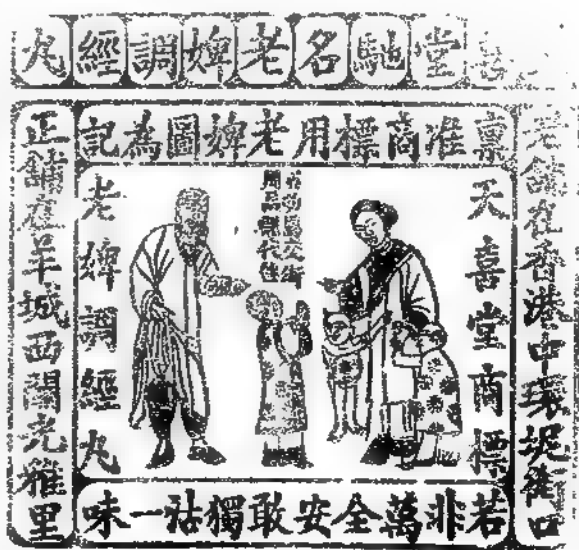 喜堂馳名老婢調經丸
稟准商標用老婢圖為記
舖在香港中環街口
天喜堂商標
老婢調經丸
正舖在羊城西關光雅里
若非萬全安敢獨沽一味